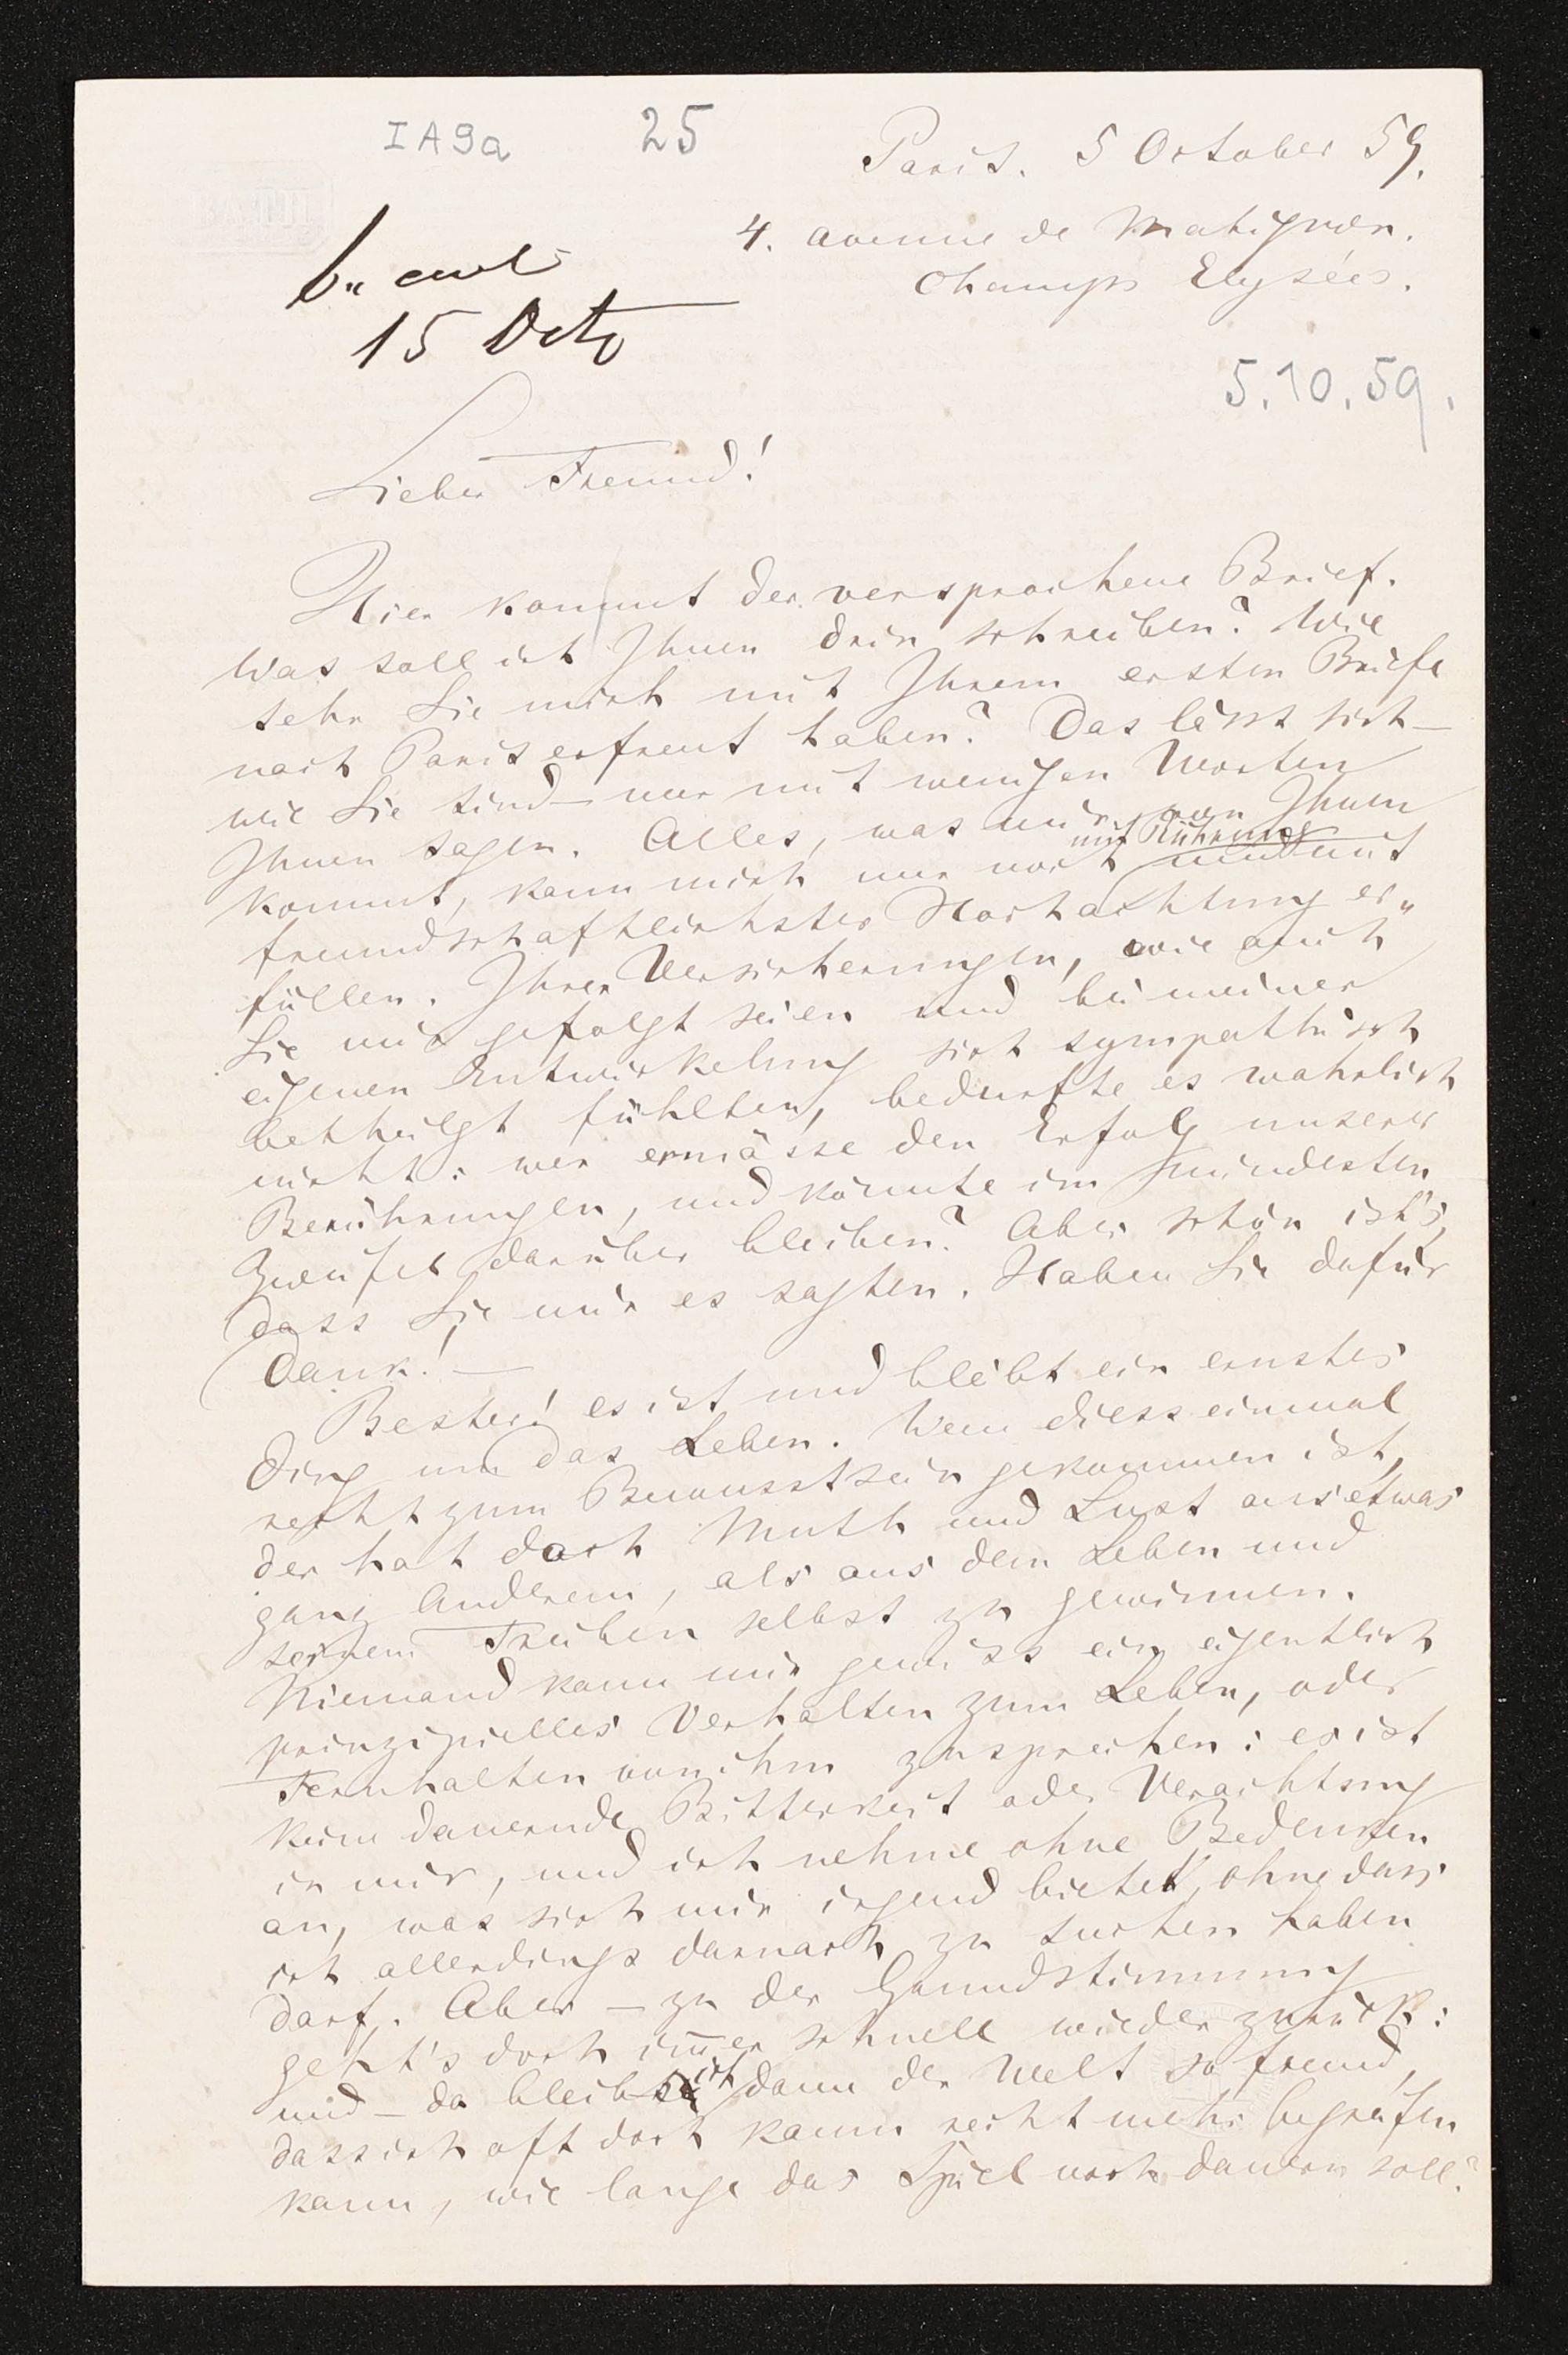 IA9a
25
Paris. 5 October 59.
4. avenue de Matignon.
Champs Elysées.
15 Octo
5.10.59.
Lieber Freund!
Hier kommt der versprochene Brief.
Was soll ich Ihnen drin schreiben? Wie
sehr Sie mich mit Ihrem ersten Briefe
nach Paris erfreut haben? Das lässt sich –
wie Sie sind – nur mit wenigen Worten
Ihnen sagen. Alles, was mir von Ihnen
mit Rührung
kommt, kann mich nur noch und mit
freundschaftlichster Hochachtung er„
füllen. Ihrer Versicherungen, wie auch
Sie mir gefolgt seien und bei meiner
eigenen Entwickelung sich sympathisch
betheilgt fühlten, bedurfte es wahrlich
nicht: wer ermässe den Erfolg unserer
Berührungen, und könnte im mindesten
Zweifel darüber bleiben? Aber schön ist's,
dass Sie mir es sagten. Haben Sie dafür
Dank! –
Bester! es ist und bleibt ein ernstes
Ding um das Leben. Wem diess einmal
recht zum Bewusstsein gekommen ist,
der hat doch Muth und Lust aus etwas
ganz Anderem, als aus dem Leben und
seinem Treiben selbst zu gewinnen.
Niemand kann mir gewiss ein eigentlich
prinzipielles Verhalten zum Leben, oder
Fernhalten von ihm zusprechen: es ist
keine dauernde Bitterkeit oder Verachtung
in mir, und ich nehme ohne Bedenken
an, was sich mir irgend bietet, ohne dass
ich allerdings darnach zu suchen haben
darf. Aber – zu der Grundstimmung
geht's doch im̅er schnell wieder zurück:
und – da bleib ich dann der Welt so fremd,
dass ich oft doch kaum recht mehr begreifen
kann, wie lange das Spiel noch dauern soll?